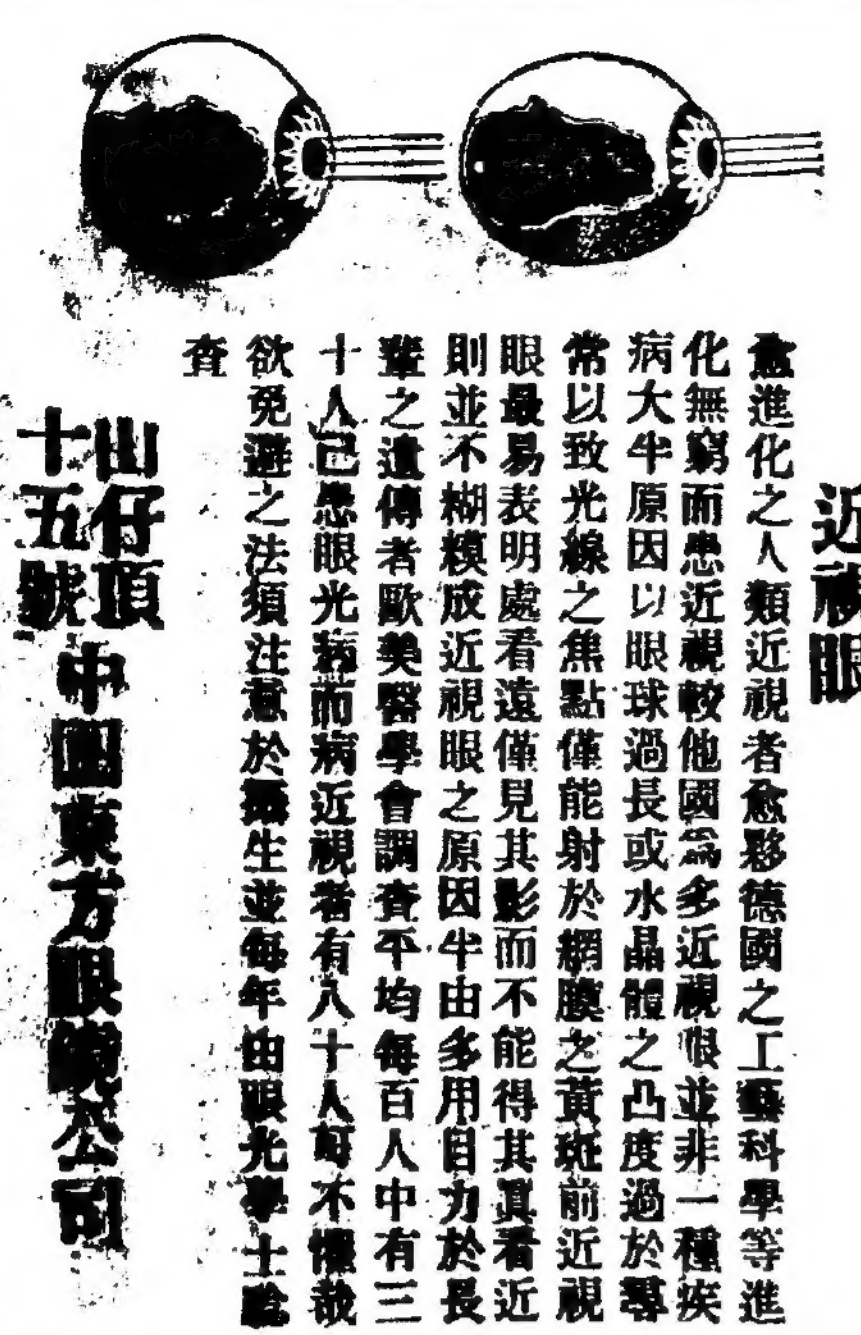 近視眼
愈進化之人類近視者愈夥德國之工藝科學等進
化無窮而患近視較他國爲多近視眼並非一種疾
病大半原因以眼球過長或水晶體之凸度過於尋
常以致光線之焦點僅能射於網膜之黃斑前近視
眼最易表明處看遠僅見其影而不能得其眞看近
則並不糊糢成近視眼之原因半由多用目力於長
輩之遺傳者歐美醫學會調查平均每百人中有三
十人已患眼光病而病近視者有八十人可不懼哉
欲免避之法須注意於攝生並每年由眼光學士驗
查
山仔頂
十五號
中國東方眼鏡公司